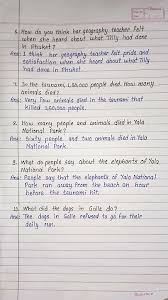 6. How do you think her geography teacher felt
when she heard about what Tilly had done
in Phuket?
Ans: I think her geography teacher felt pride and
satisfaction when she heard about what Tilly
has done in Phuket.
7. In the tsunami 1,50,000 people died. How many
animals died?
Ans: Very few animals died in the tsunami that
killed 150,000 people.
8. How many people and animals died in Yala
National Park?
Ans: Sixty people and two animals died in Yala
National Park.
9. What do people say about the elephants of Yala
National Park?
Ans: People say that the elephants of Yala National
Park ran away from the beach an hour
before the tsunami hit.
10. What did the dogs in Galle do?
Ans: The dogs in Galle refused to go for their
daily run.